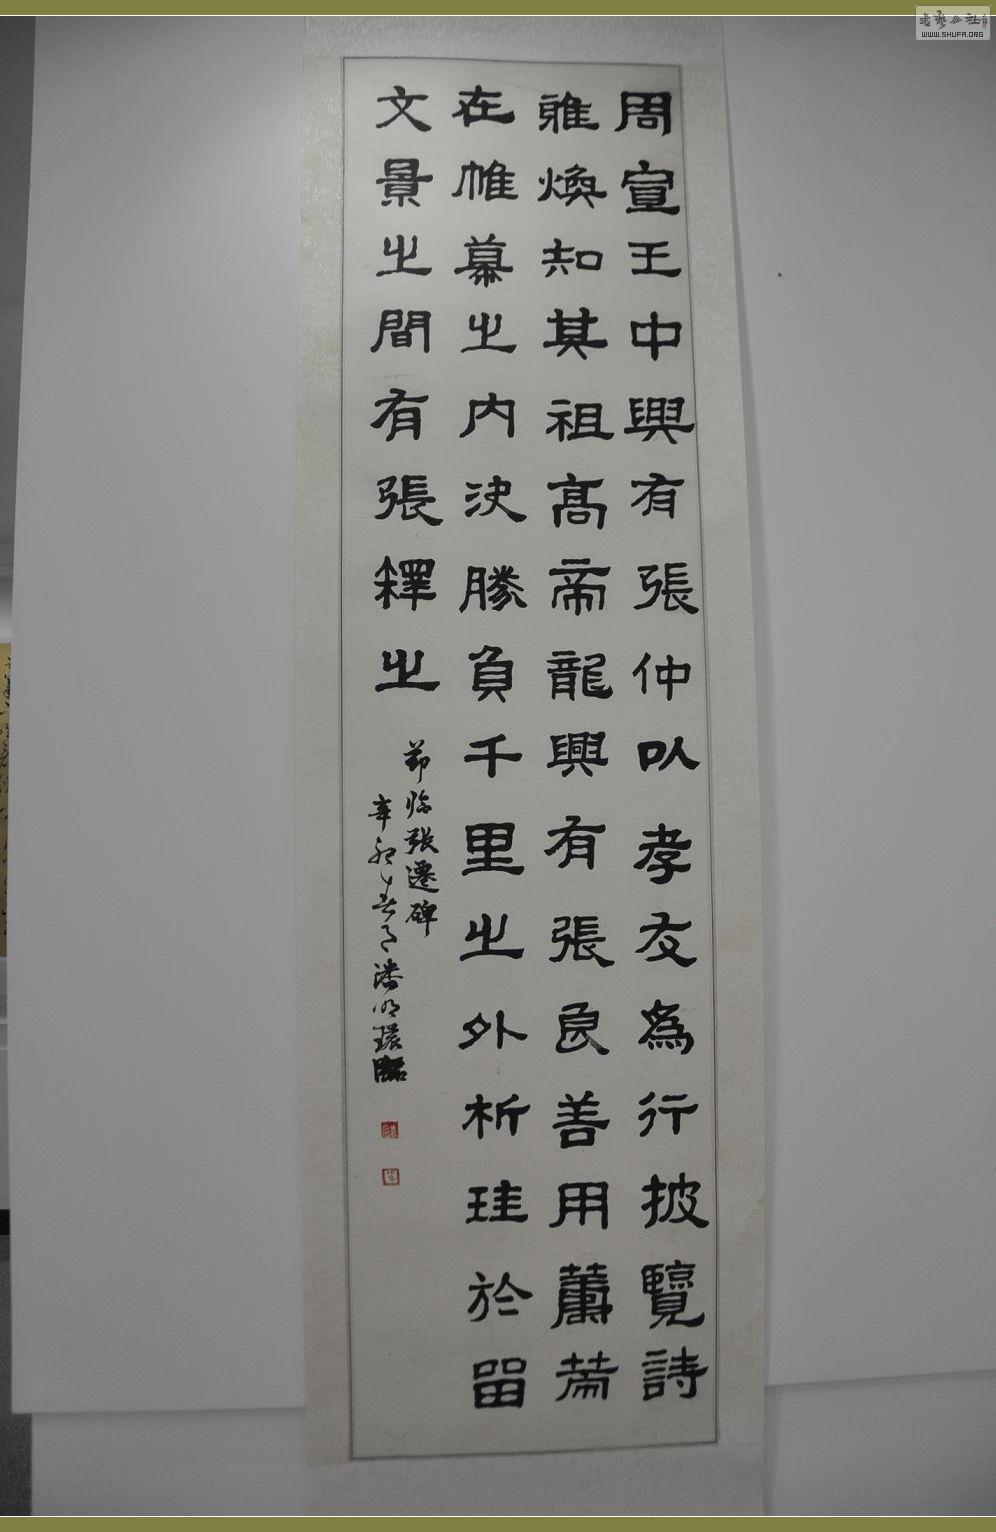 周宣王中興有張仲以孝友為行披覽詩
雅煥知其祖高帝龍興有張良善用蕭蕭
在帷幕之內決勝負千里之外析珪於留
文景之間有張釋之
節臨張遷碑
辛卯年春月潘明環臨
WWW.SHUFA.ORG